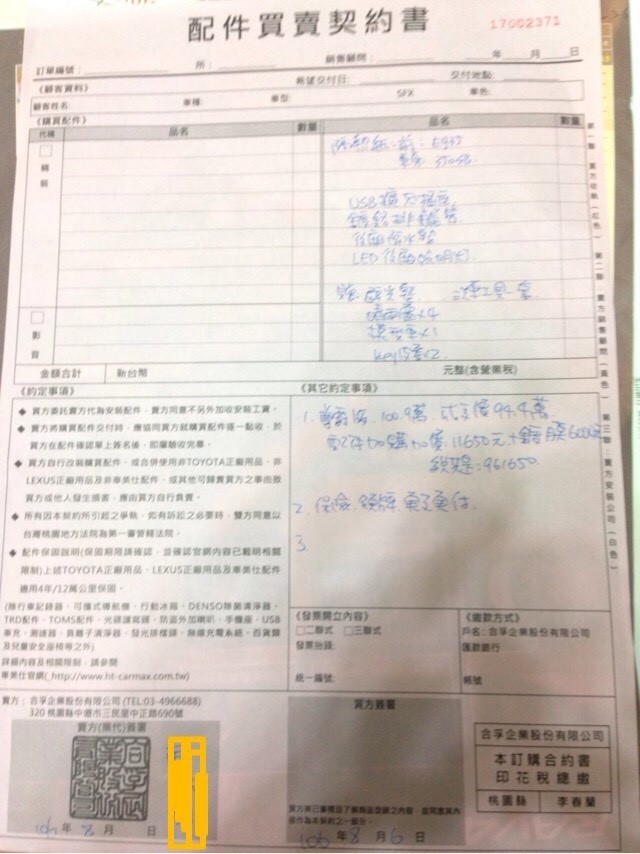 配件買賣契約書
17002371
訂單編號： 所： 銷售顧問： 年 月 日
希望交付日： 交付地點：
《顧客資料》
顧客姓名： 車種： 車型： SFX 車色：
《購買配件》
代碼 品名 數量 品名 數量
精裝
影音
USB擴充插座
後廂防水墊
LED後廂照明灯
模型車x1
key皮套x2
金額合計 新台幣 元整(含營業稅)
第一聯：買方收執(紅色)
第二聯：賣方銷售顧問(黃色)
第三聯：賣方安裝公司(白色)
《約定事項》
◆ 買方委託賣方代為安裝配件，賣方同意不另外加收安裝工資。
◆ 賣方將購買配件交付時，應協同買方就購買配件逐一點收，於
買方在配件確認單上簽名後，即屬驗收完畢。
◆ 買方自行改裝購買配件，或合併使用非TOYOTA正廠用品、非
LEXUS正廠用品及非車美仕配件，或其他可歸責買方之事由致
買方或他人發生損害，應由買方自行負責。
◆ 所有因本契約所引起之爭執，如有訴訟之必要時，雙方同意以
台灣桃園地方法院為第一審管轄法院。
◆ 配件保固說明(保固期限請確認，並確認官網內容已載明相關
限制)上述TOYOTA正廠用品、LEXUS正廠用品及車美仕配件
適用4年/12萬公里保固。
(除行車記錄器、可攜式導航機、行動冰箱、DENSO除菌清淨器、
TRD配件、TOMS配件、光觸媒寫頭、防盜外加喇叭、手機座、USB
車充、測速器、負離子清淨器、發光排檔頭、無線充電系統、百貨類
及兒童安全座椅等之外)
詳細內容及相關限制，請參閱
車美仕官網(http://www.ht-carmax.com.tw)
《其它約定事項》
1. 尊爵版 100.9萬，成交價94.4萬
配件加購加價11650元+
總是:961650.
2. 保險
3.
《發票開立內容》
□二聯式 □三聯式
發票抬頭：
統一編號：
《繳款方式》
戶名：合孚企業股份有限公司
匯款銀行
帳號
賣方：合孚企業股份有限公司 (TEL:03-4966688)
320 桃園縣中壢市三民里中正路690號
賣方(業代)簽署
106年8月 日
買方簽署
買方業已審閱並了解商品型錄之內容，並同意其內
容作為本契約之一部份。
106年8月6日
合孚企業股份有限公司
本訂購合約書
印花稅總繳
桃園縣 李春蘭